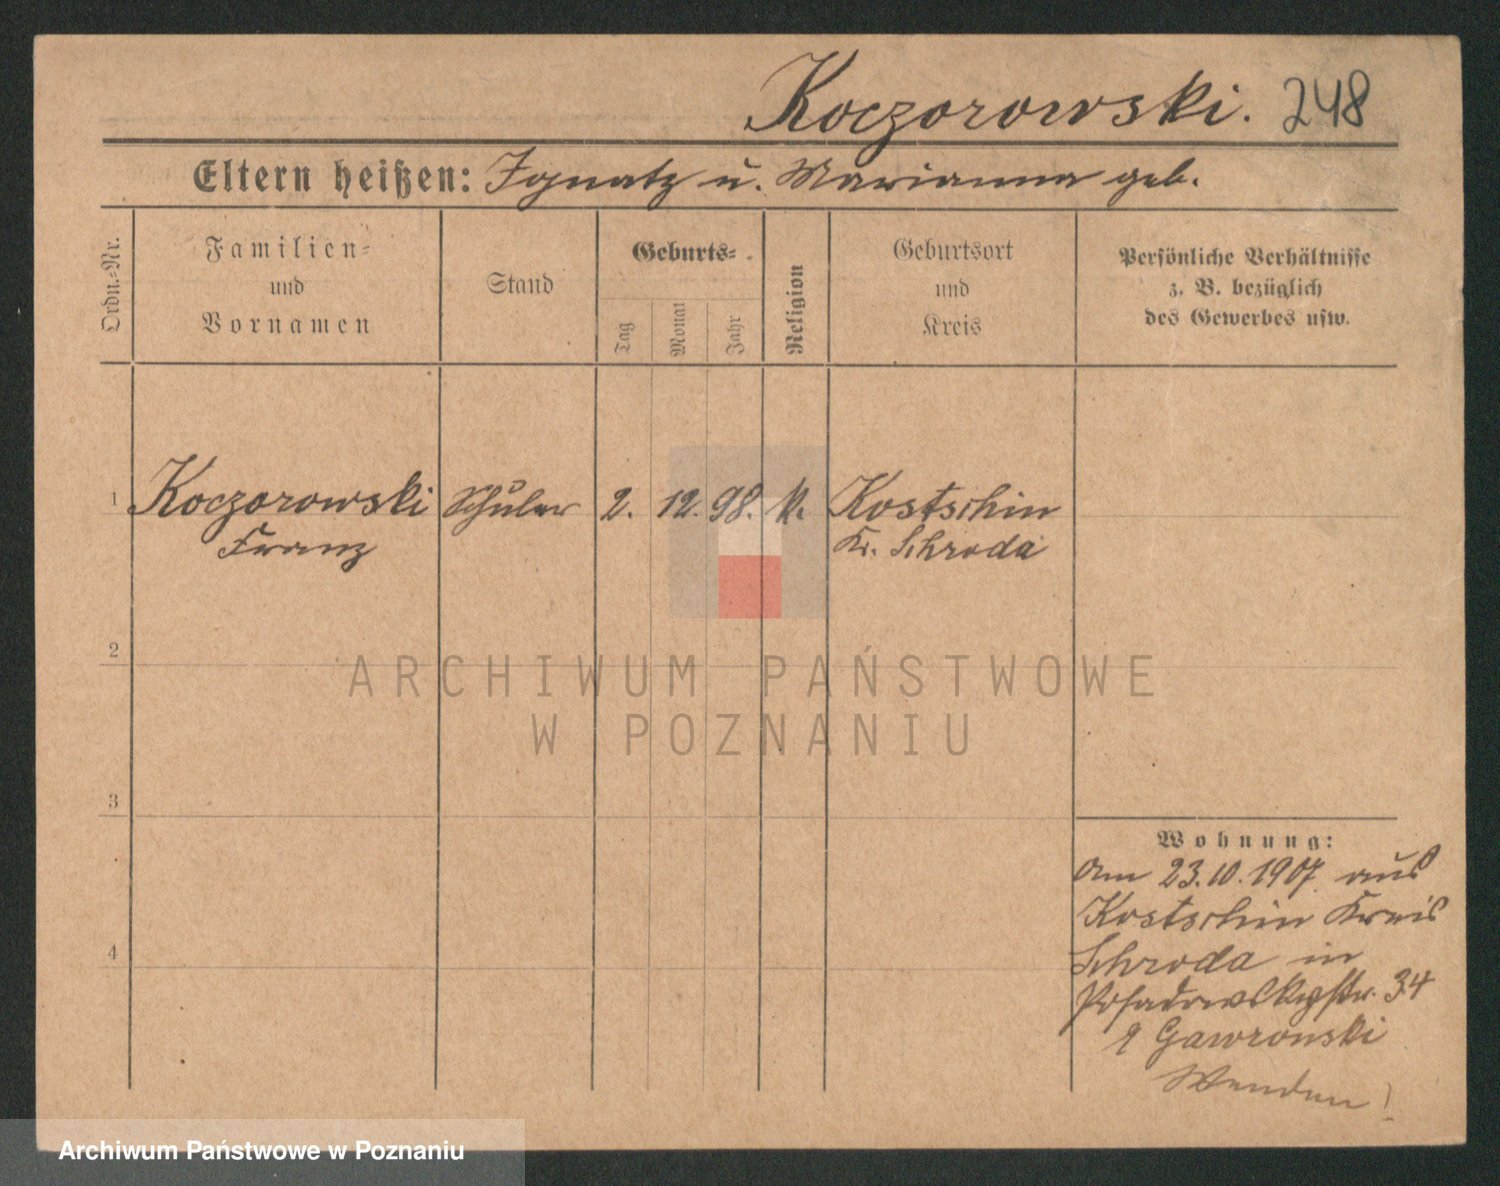 Koczorowski. 248
Eltern heißen: Ignatz u. Marianna geb.
Ordn.-Nr.
Familien-
und
Vornamen
Stand
Geburts-
Tag
Monat
Jahr
Religion
Geburtsort
und
Kreis
Persönliche Verhältnisse
z. B. bezüglich
des Gewerbes usw.
1 Koczorowski Schüler 2. 12. 98. k. Kostschin
Franz Kr. Schroda
2
3
4
ARCHIWUM PAŃSTWOWE
W POZNANIU
Wohnung:
Am 23.10.1907 aus
Kostschin Kreis
Schroda in
Posadowskystr. 34
Gawronski
Wenden!
Archiwum Państwowe w Poznaniu